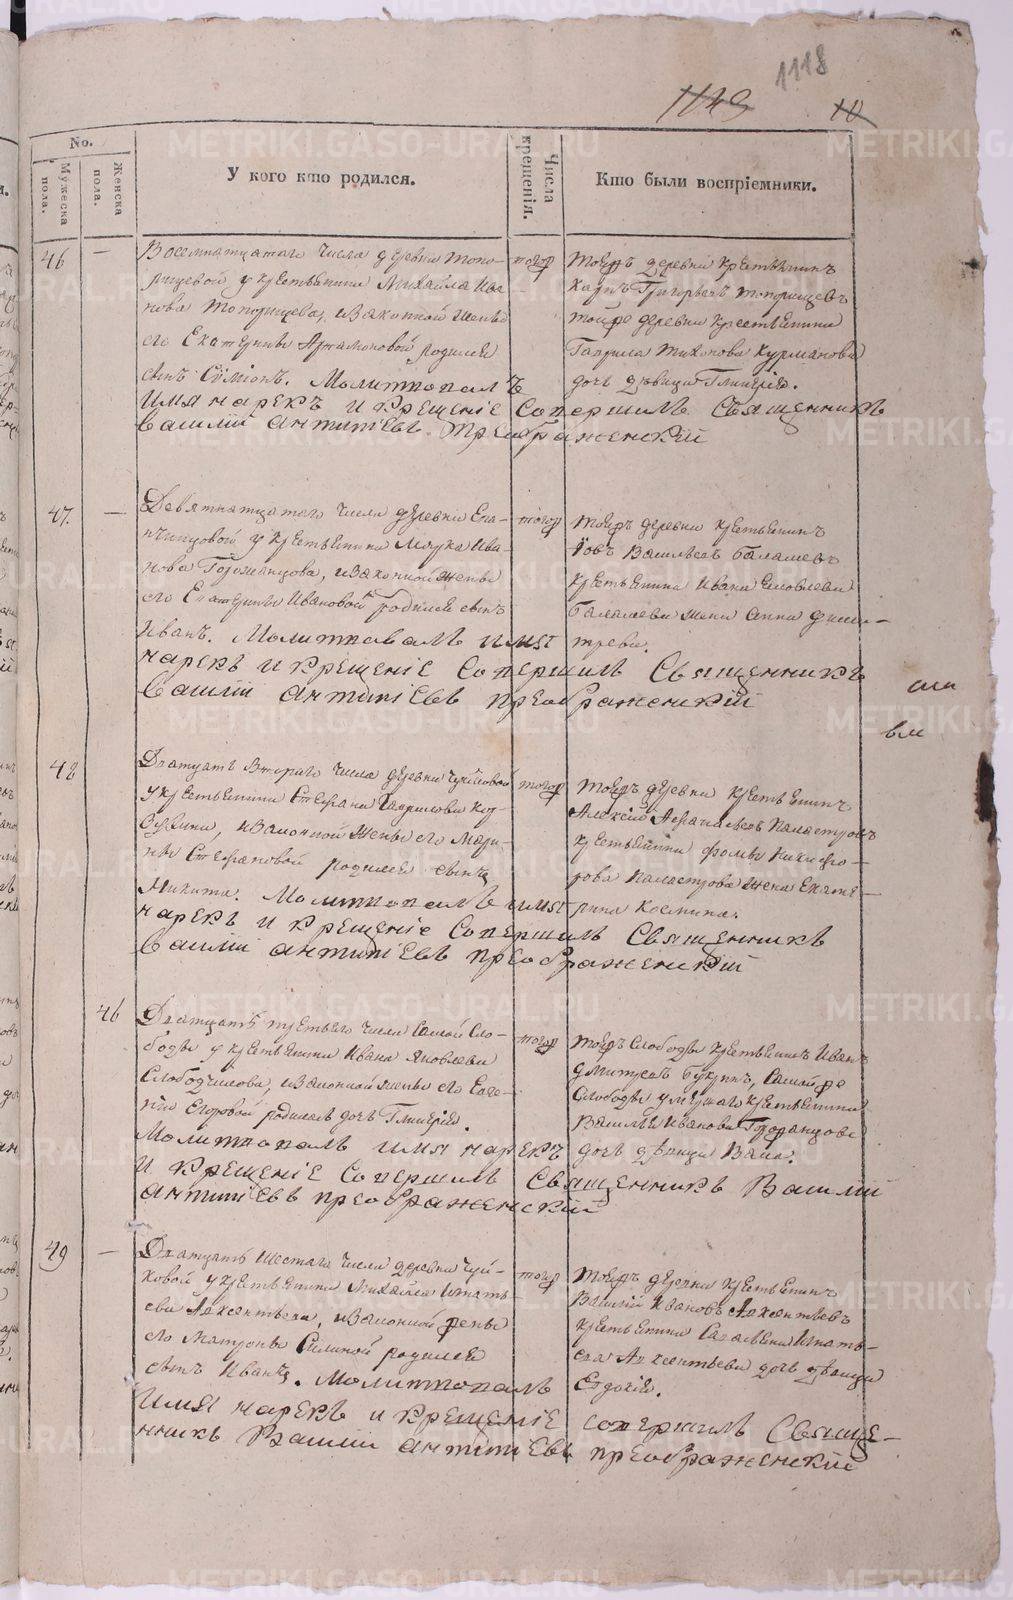 1118
1149
10
No.
Мужеска пола.
Женска пола.
У кого кто родился.
Числа крещенія.
Кто были воспріемники.
46
—
Восемнатцатаго числа деревни Топо-
рищевой у крестьянина Михайла Ива
нова Топорищева, изаконной жены
его Екатерины Артамоновой родился
сынъ Сѵміонъ. Молитвовалъ
имя нарекъ и крещеніе совершилъ священникъ
Василій Антипіевъ Преображенскій
тогож
Тоеяжъ деревни крестьянинъ
Карпъ Григорьевъ Топорищевъ
тойже деревни крестьянина
Гаврила Тихонова Курманова
дочь девица Гликерія.
47.
—
Девятнатцатаго числа деревни Епа-
нчинцовой у крестьянина Марка Ива-
нова изаконной жены
его Екатерины Ивановой родился сынъ
Иванъ. Молитвовалъ имя
нарекъ и крещеніе совершилъ священникъ
Василій Антипіевъ Преображенскій
тогож
Тоеяжъ деревни крестьянинъ
Іовъ Васильевъ Балашевъ
крестьянина Ивана Яковлева
Балашева жена Анна Дими-
трева.
48
Дватцать втораго числа деревни Чуйковой
у крестьянина Стефана Гаврилова
изаконной жены его Мари-
ны Стефановой родился сынъ
Никита. Молитвовалъ имя
нарекъ и крещеніе совершилъ священникъ
Василій Антипіевъ Преображенскій
тогож
Тоеяжъ деревни крестьянинъ
Алексій Афанасьевъ
крестьянина Фомы Никифо-
рова жена Екате-
рина Космина.
46
Дватцать третьего числа самой Сло-
боды у крестьянина Ивана Яковлева
Слободчикова, изаконной жены его Евге-
ніи Егоровой родилась дочь Гликерія.
Молитвовалъ имя нарекъ
и крещеніе совершилъ священникъ Василій
Антипіевъ Преображенскій
тогож
Тоеяжъ Слободы крестьянинъ Иванъ
Дмитревъ Букринъ, самойже
Слободы умершаго крестьянина
Василья Иванова
дочь девица Васа.
49
—
Дватцать шестаго числа деревни Чуй-
ковой у крестьянина Михайла Игнать-
ева Авксентьева, изаконной жены
его Матроны Силиной родился
сынъ Иванъ. Молитвовалъ
имя нарекъ и крещеніе совершилъ свяще-
нникъ Василій Антипіевъ Преображенскій
тогож
Тоеяжъ деревни крестьянинъ
Василій Ивановъ Авксентьевъ
крестьянина Савельяна Игнать-
ева Авксентьева дочь девица
Евдокія.